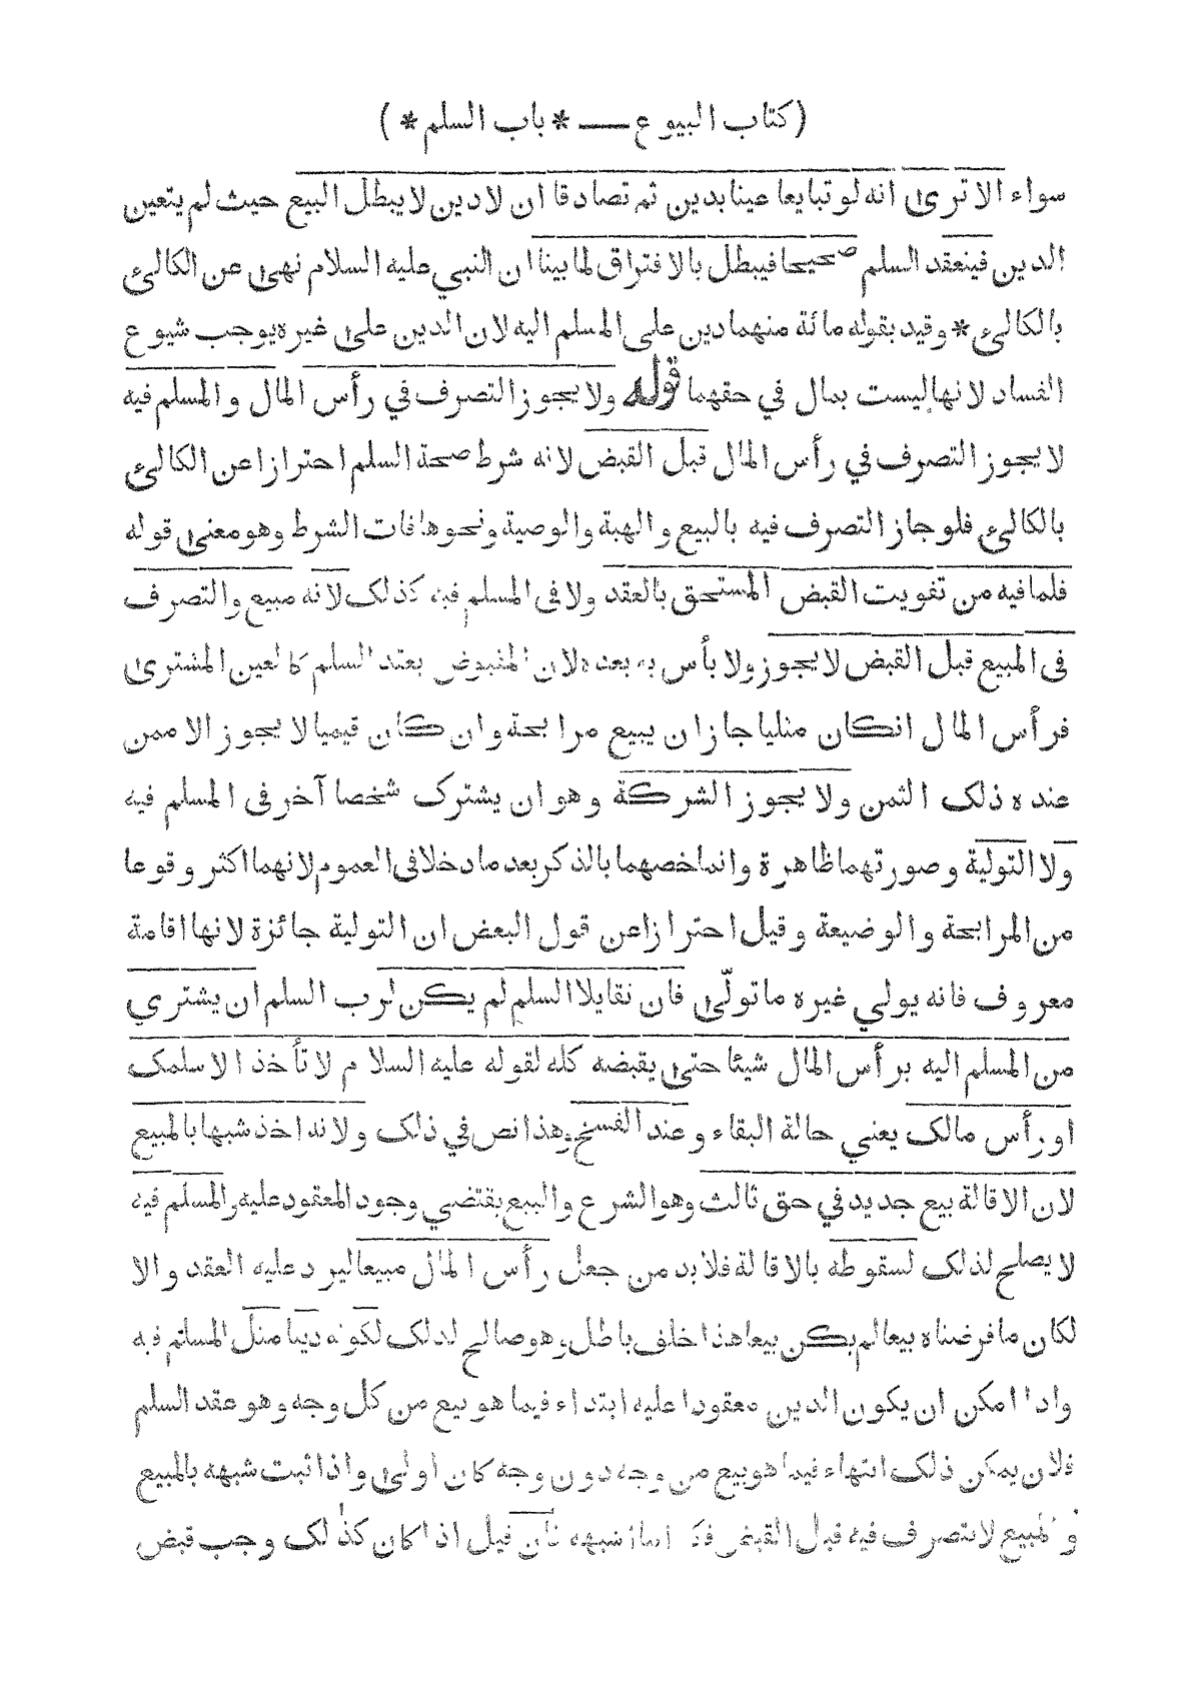 (كتاب البيوع — * باب السلم *)
سواء الا ترى انه لو تبايعا عينا بدين ثم تصادقا ان لا دين لا يبطل البيع حيث لم يتعين
الدين فينعقد السلم صحيحا فيبطل بالافتراق لما بينا ان النبي عليه السلام نهى عن الكالئ
بالكالئ * وقيد بقوله مائة منهما دين على المسلم اليه لان الدين على غيره يوجب شيوع
الفساد لانها ليست بمال في حقهما قوله ولا يجوز التصرف في رأس المال والمسلم فيه
لا يجوز التصرف في رأس المال قبل القبض لانه شرط صحة السلم احترازا عن الكالئ
بالكالئ فلو جاز التصرف فيه بالبيع والهبة والوصية ونحوها فات الشرط وهو معنى قوله
فلما فيه من تفويت القبض المستحق بالعقد ولا فى المسلم فيه كذلك لانه مبيع والتصرف
فى المبيع قبل القبض لا يجوز ولا بأس به بعده لان المقبوض بعقد السلم كالعين المشترى
فرأس المال ان كان مثليا جاز ان يبيع مرابحة وان كان قيميا لا يجوز الا ممن
عنده ذلك الثمن ولا يجوز الشركة وهو ان يشترك شخصا آخر فى المسلم فيه
ولا التولية وصورتهما ظاهرة وانما خصهما بالذكر بعد ما دخلا فى العموم لانهما اكثر وقوعا
من المرابحة والوضيعة وقيل احترازا عن قول البعض ان التولية جائزة لانها اقامة
معروف فانه يولي غيره ما تولّى فان تقايلا السلم لم يكن لرب السلم ان يشتري
من المسلم اليه برأس المال شيئا حتى يقبضه كله لقوله عليه السلام لا تأخذ الا سلمك
او رأس مالك يعني حالة البقاء وعند الفسخ وهذا نص في ذلك ولانه اخذ شبها بالمبيع
لان الاقالة بيع جديد في حق ثالث وهو الشرع والبيع يقتضي وجود المعقود عليه والمسلم فيه
لا يصلح لذلك لسقوطه بالاقالة فلا بد من جعل رأس المال مبيعا ليرد عليه العقد والا
لكان ما فرضناه بيعا لم يكن بيعا هذا خلف باطل وهو صالح لذلك لكونه دينا مثل المسلم فيه
واذا امكن ان يكون الدين معقودا عليه ابتداء فيما هو بيع من كل وجه وهو عقد السلم
فلان يمكن ذلك انتهاء فيما هو بيع من وجه دون وجه كان اولى واذا ثبت شبهه بالمبيع
والمبيع لا تصرف فيه قبل القبض فكذا ما شبهه فان قيل اذا كان كذلك وجب قبض